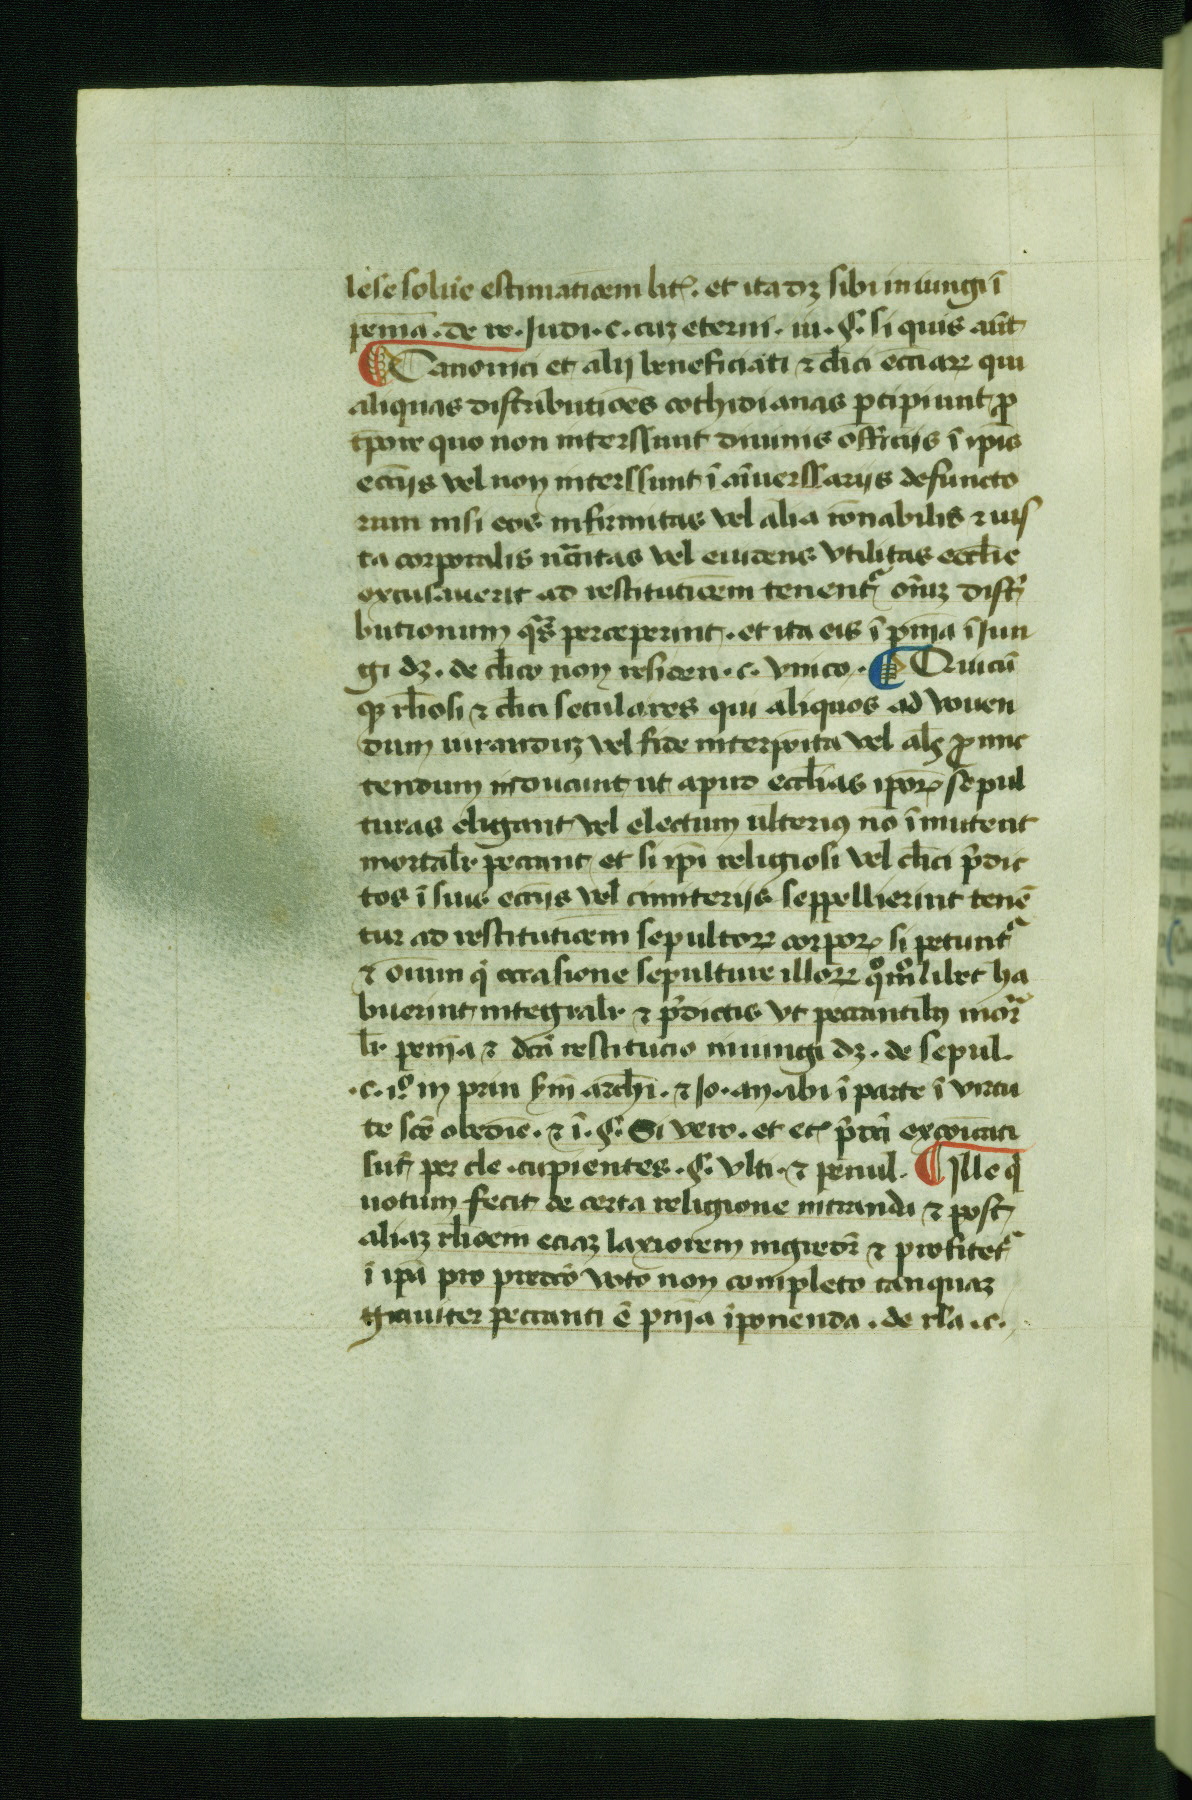 lese solue estimatioem lit. et ita dz sibi iniungi ī
penīa . de re . Judi . c . cuz eterni . iii . §. si quis aūt
¶ Canonici et alij beneficiati ⁊ clīci ecciaꝝ qui
aliquas distributiōes cothidianas ꝑcipiunt ꝓ
tp̄ore quo non interssunt diuinis offīciis ī ip̄is
ecc̄iis vel non interssunt ī an̄iuerssarijs defuncto
rum nisi eos infirmitas vel alia rōnabilis ⁊ uis
ta corporalis nc̄citas vel euidens vtilitas ecclīe
excusauerit ad restitutioem tenent̄ oīuz dist̄
butionum qs̄ perceperint . et ita eis ī pn̄ia īiun
gi dz . de clīco non residen . c . vnico . ¶ Quicū
qꝫ rlīosi ⁊ clīci seculares qui aliquos ad vouen
dum iurandūz vel fide interpoīta vel als ꝓmit
tendum inducunt ut apud ecclīas ipoꝝ sepul
turas eligant vel electum ulterius nō īmutent
mortalr̄ peccant et si ip̄i religiosi vel clīci p̄dic
tos ī suis ecc̄iis vel cimiterijs seppellierint tenē
tur ad restitutioem sepultoꝝ corpoꝝ si petunt̄
⁊ oīum q̄ occasione sepulture illoꝝ qōmōlibet ha
buerint integralr̄ ⁊ p̄dictis vt peccantibꝫ mor̄
lr̄ penīa ⁊ dc̄a restitucio iniungi dz . de sepul .
. c . 1º in prin scd̄m arcħi . ⁊ Jo . an . ibi ī parte ī virtu
te sc̄e obedie . ⁊ ī . §. Si vero . et etꝫ p̄dc̄i excōicati
sūt per cle . cupientes . §. vlti . ⁊ penul . ¶ Ille q̄
uotum fecit de certa religione intranda ⁊ post
aliaz rlīoem eciaz laxiorem ingredit̄ ⁊ profitet̄
ī ip̄a pro predc̄o voto non completo tanquaz
grauiter peccanti ē pn̄ia īponenda . de rla . c .